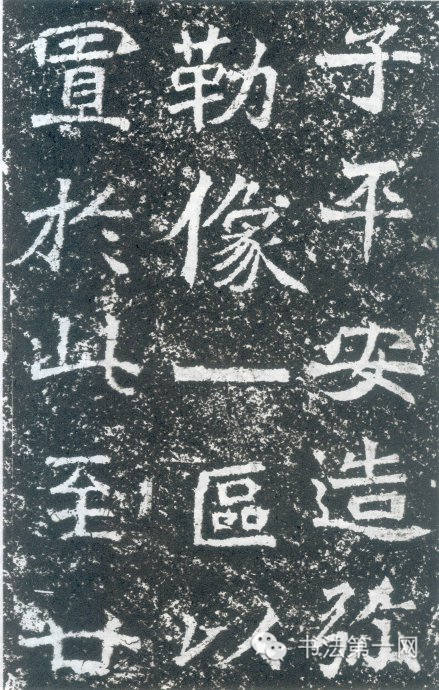 子平安造弥
勒像一區以
置於此至廿
书法第一网